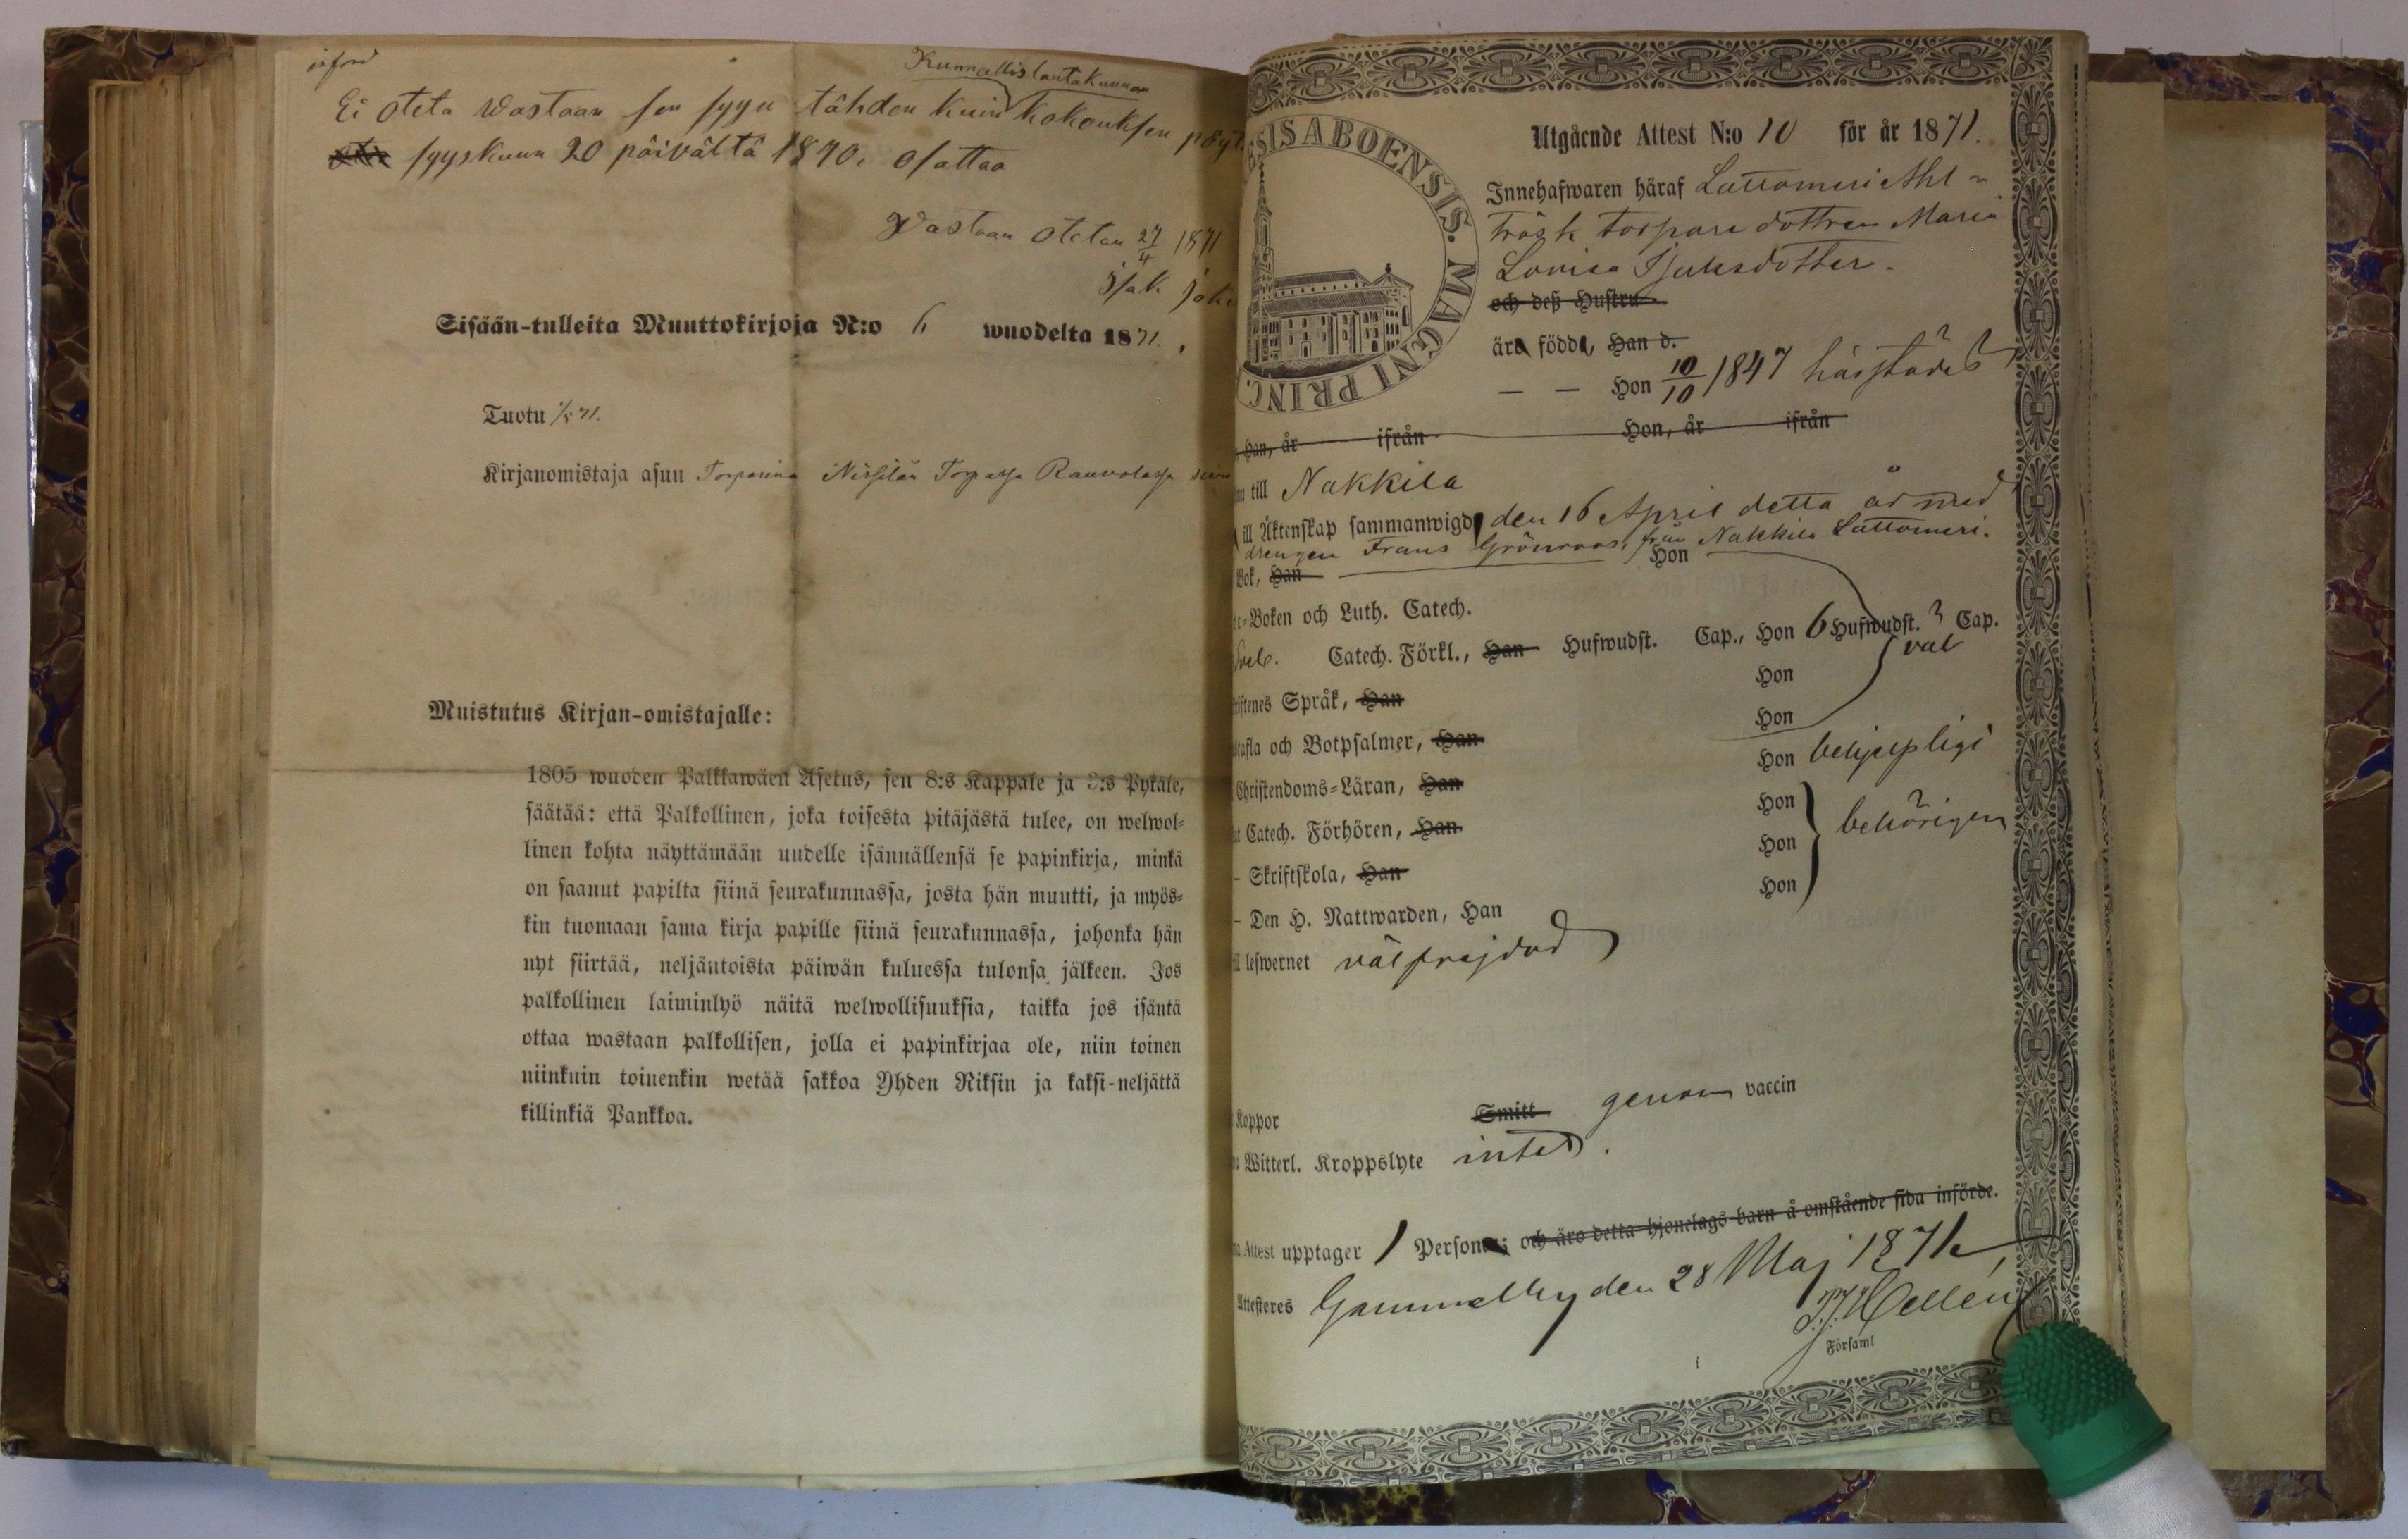 införd
Kunnallislautakunnan
Ei oteta Wastaan sen syyn tähden kuin kokouksen pöyt
syyskuun 20 päivältä 1870. osattaa
Wastaan otetan 27/4 1871
Isak
Sisään-tulleita Muuttokirjoja N:o 6 wuodelta 1871.
Tuotu 1/5 71.
Kirjanomistaja asuu Torparina Nissilän Torpassa Ranvolassa
Muistutus Kirjan-omistajalle:
1805 wuoden Palkkawäen Asetus, sen 8:s Kappale ja 3:s Pykäle,
säätää: että Palkollinen, joka toisesta pitäjästä tulee, on welwol-
linen kohta näyttämään uudelle isännällensä se papinkirja, minkä
on saanut papilta siinä seurakunnassa, josta hän muutti, ja myös-
kin tuomaan sama kirja papille siinä seurakunnassa, johonka hän
nyt siirtää, neljäntoista päiwän kuluessa tulonsa jälkeen. Jos
palkollinen laiminlyö näitä welwollisuuksia, taikka jos isäntä
ottaa wastaan palkollisen, jolla ei papinkirjaa ole, niin toinen
niinkuin toinenkin wetää sakkoa Yhden Riksin ja kaksi-neljättä
killinkiä Pankkoa.
ESISABOENSIS. MAGNI PRINC.
Utgående Attest N:o 10 för år 1871.
Innehafwaren häraf Lattomeri Ahl-
träsk torpare dottren Maria
Lovisa Isaksdotter.
och deß Hustru
äro födde, Han d.
— — Hon 10/10 1847 härstädes
Han, år ifrån Hon, år ifrån
till Nakkila
till Äktenskap sammanwigd den 16 April detta år med
drengen Frans Grönroos, från Nakkila Lattomeri.
Bok, Han Hon
-Boken och Luth. Catech.
Catech. Förkl., Han Hufwudst. Cap., Hon 6 Hufwudst. Cap.
väl
Språk, Han Hon
tafla och Botpsalmer, Han Hon
Christendoms-Läran, Han Hon behjelpligt
Catech. Förhören, Han Hon
behörigen
- Skriftskola, Han Hon
- Den H. Nattwarden, Han Hon
lefwernet välfrejdad
Koppor Smitt genom vaccin
Witterl. Kroppslyte intet.
Attest upptager 1 Personer; och äro detta hjonelags barn å omstående sida införde.
Attesteres Gammelby den 28 Maj 1871,
Hellén
Församl